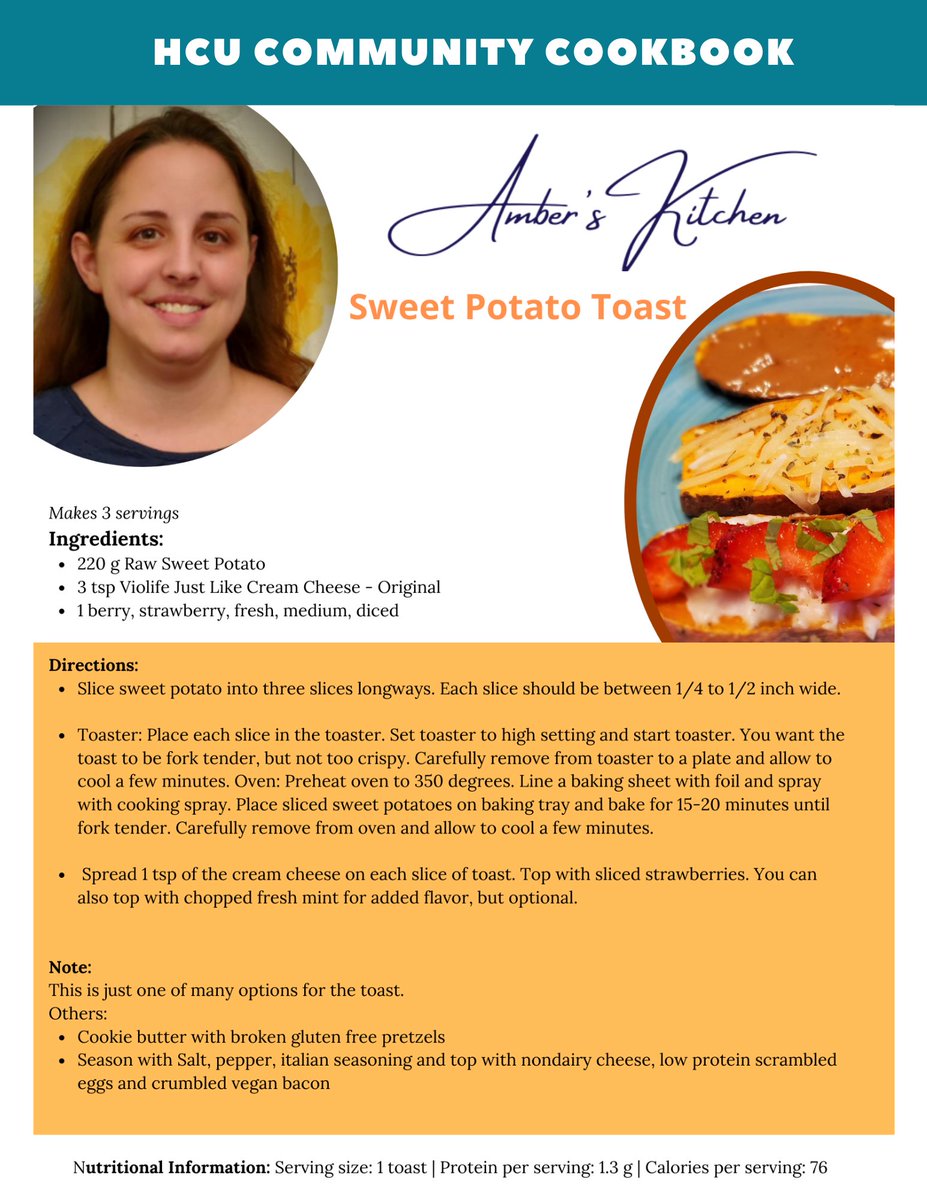 HCU COMMUNITY COOKBOOK
Amber's Kitchen
Sweet Potato Toast
Makes 3 servings
Ingredients:
• 220 g Raw Sweet Potato
• 3 tsp Violife Just Like Cream Cheese - Original
• 1 berry, strawberry, fresh, medium, diced
Directions:
• Slice sweet potato into three slices longways. Each slice should be between 1/4 to 1/2 inch wide.
• Toaster: Place each slice in the toaster. Set toaster to high setting and start toaster. You want the
toast to be fork tender, but not too crispy. Carefully remove from toaster to a plate and allow to
cool a few minutes. Oven: Preheat oven to 350 degrees. Line a baking sheet with foil and spray
with cooking spray. Place sliced sweet potatoes on baking tray and bake for 15-20 minutes until
fork tender. Carefully remove from oven and allow to cool a few minutes.
• Spread 1 tsp of the cream cheese on each slice of toast. Top with sliced strawberries. You can
also top with chopped fresh mint for added flavor, but optional.
Note:
This is just one of many options for the toast.
Others:
• Cookie butter with broken gluten free pretzels
• Season with Salt, pepper, italian seasoning and top with nondairy cheese, low protein scrambled
eggs and crumbled vegan bacon
Nutritional Information: Serving size: 1 toast | Protein per serving: 1.3 g | Calories per serving: 76